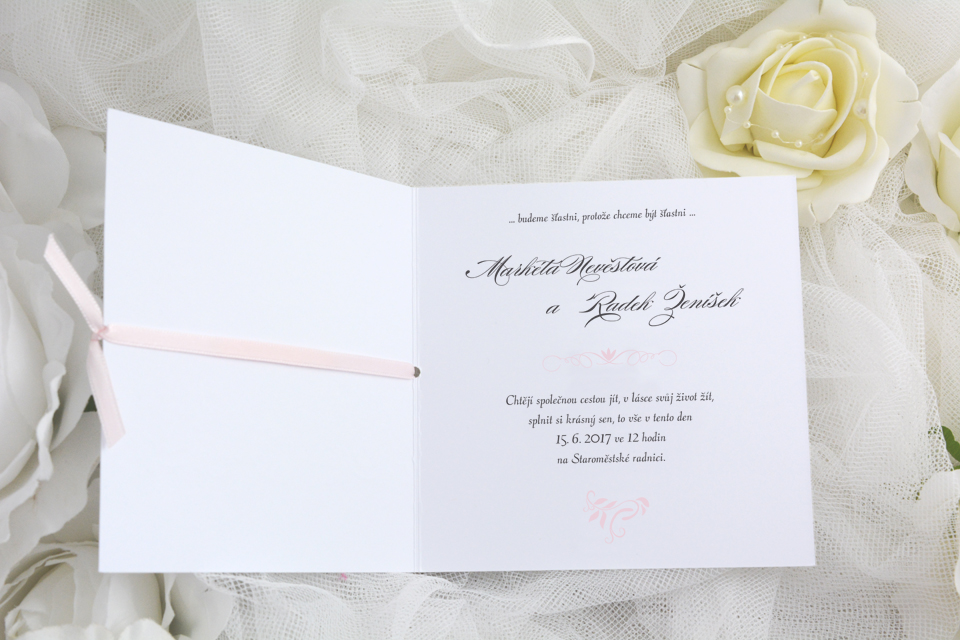 ... budeme šťastni, protože chceme být šťastni ...
Markéta Nevěstová
a Radek Ženíšek
Chtějí společnou cestou jít, v lásce svůj život žít,
splnit si krásný sen, to vše v tento den
15. 6. 2017 ve 12 hodin
na Staroměstské radnici.